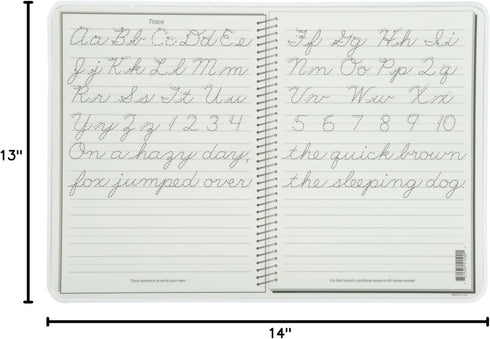 Trace
Aa Bb Cc Dd Ee
Ff Gg Hh Ii
Jj Kk Ll Mm
Nn Oo Pp Qq
Rr Ss Tt Uu
Vv Ww Xx
Yy Zz 1 2 3 4
5 6 7 8 9 10
On a hazy day,
the quick brown
fox jumped over
the sleeping dog.
Trace sentence or write your own
For best results use damp-erase or dri-erase marker
13"
14"